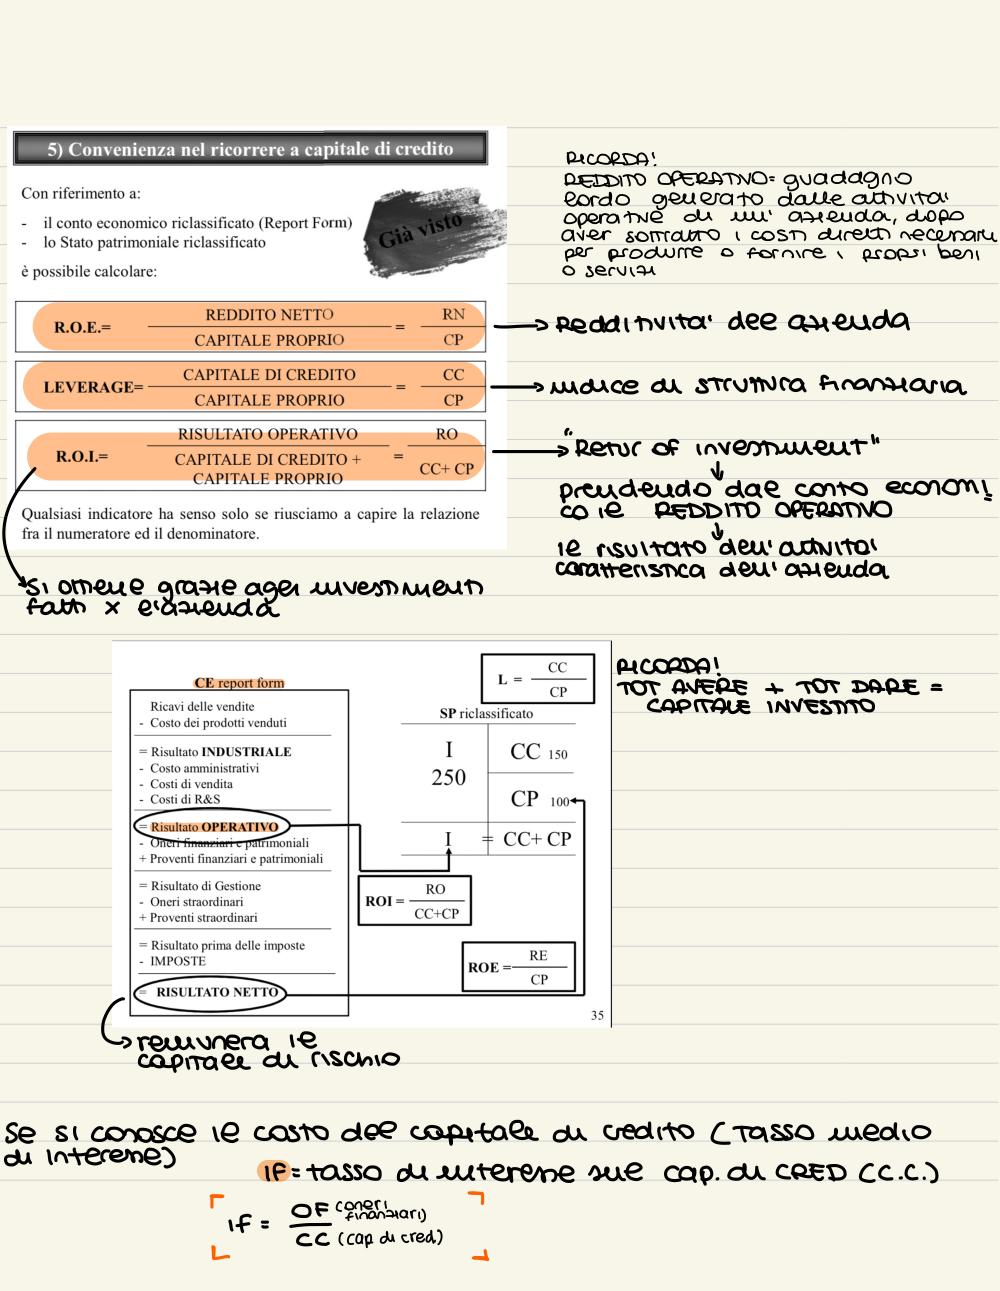 5) Convenienza nel ricorrere a capitale di credito
Con riferimento a:
- il conto economico riclassificato (Report Form)
- lo Stato patrimoniale riclassificato
è possibile calcolare:
Già visto
R.O.E.= REDDITO NETTO / CAPITALE PROPRIO = RN / CP
LEVERAGE= CAPITALE DI CREDITO / CAPITALE PROPRIO = CC / CP
R.O.I.= RISULTATO OPERATIVO / CAPITALE DI CREDITO + CAPITALE PROPRIO = RO / CC+ CP
Qualsiasi indicatore ha senso solo se riusciamo a capire la relazione
fra il numeratore ed il denominatore.
RICORDA!
REDDITO OPERATIVO= guadagno
lordo generato dalle attività
operative di un'azienda, dopo
aver sottratto i costi diretti necessari
per produrre o fornire i propri beni
o servizi
→ Redditività del azienda
→ indice di struttura finanziaria
→ "Retur of investiment"
↓
prendendo dal conto economi
co il REDDITO OPERATIVO
↓
il risultato dell'attività
caratteristica dell'azienda
si ottiene grazie agli investimenti
fatti x l'azienda
CE report form
Ricavi delle vendite
- Costo dei prodotti venduti
= Risultato INDUSTRIALE
- Costo amministrativi
- Costi di vendita
- Costi di R&S
= Risultato OPERATIVO
- Oneri finanziari e patrimoniali
+ Proventi finanziari e patrimoniali
= Risultato di Gestione
- Oneri straordinari
+ Proventi straordinari
= Risultato prima delle imposte
- IMPOSTE
= RISULTATO NETTO
L = CC / CP
SP riclassificato
I CC 150
250
CP 100
I = CC+ CP
ROI = RO / CC+CP
ROE = RE / CP
35
RICORDA!
TOT AVERE + TOT DARE =
CAPITALE INVESTITO
→ remunera il
capitale di rischio
Se si conosce il costo del capitale di credito (Tasso medio
di interesse)
IF = tasso di interesse sul cap. di CRED (C.C.)
If = OF (oneri finanziari) / CC (cap di cred)